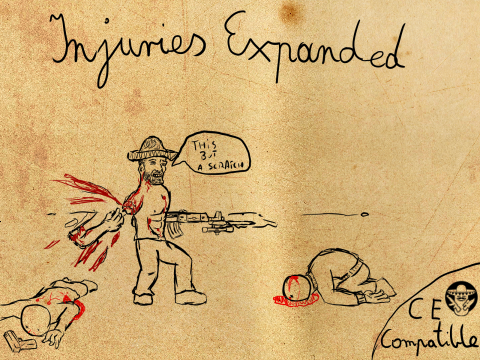 Injuries Expanded
THIS
BUT
A SCRATCH
CE
Compatible